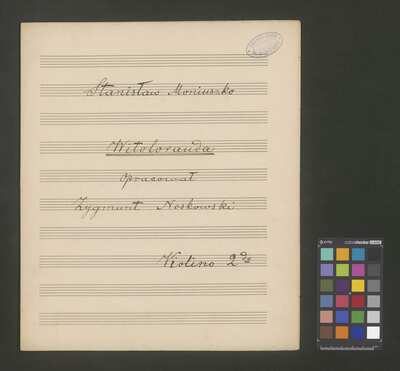 Stanisław Moniuszko
Witoloranda
opracował
Zygmunt Noskowski
Violino 2do